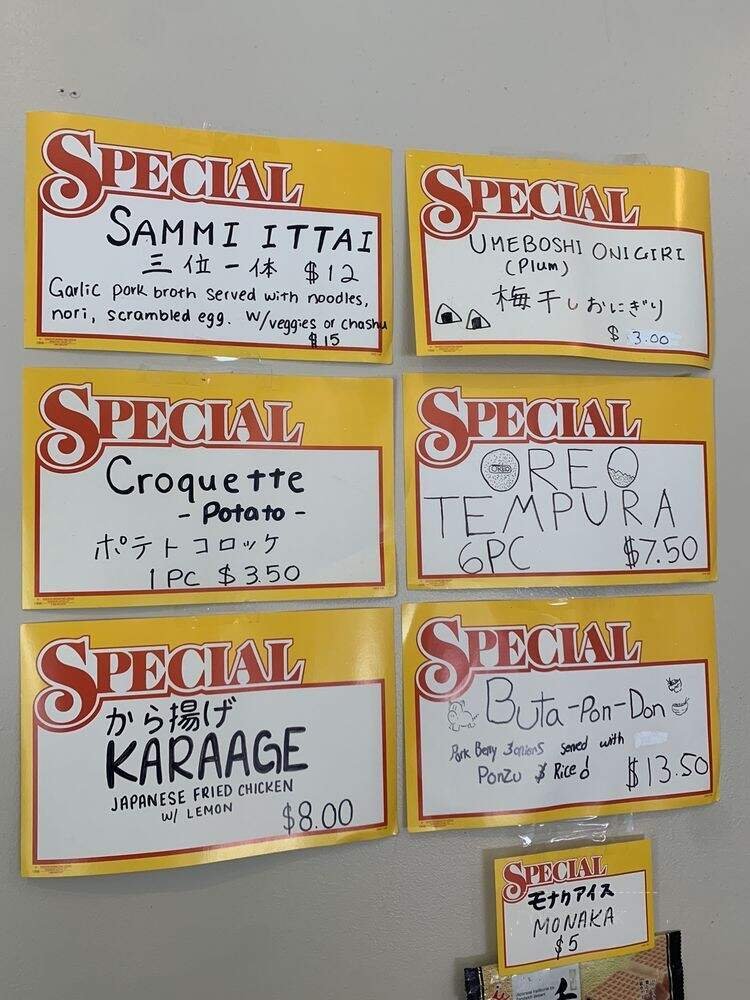 SPECIAL
SAMMI ITTAI
三位一体 $12
Garlic pork broth served with noodles,
nori, scrambled egg. W/veggies or chashu
$15
SPECIAL
UMEBOSHI ONIGIRI
(Plum)
梅干しおにぎり
$ 3.00
SPECIAL
Croquette
- Potato -
ポテトコロッケ
1PC $3.50
SPECIAL
OREO
OREO
TEMPURA
6PC $7.50
SPECIAL
から揚げ
KARAAGE
JAPANESE FRIED CHICKEN
W/ LEMON
$8.00
SPECIAL
Buta-Pon-Don
Pork Belly & onions served with
Ponzu & Rice!
$13.50
SPECIAL
モナカアイス
MONAKA
$5